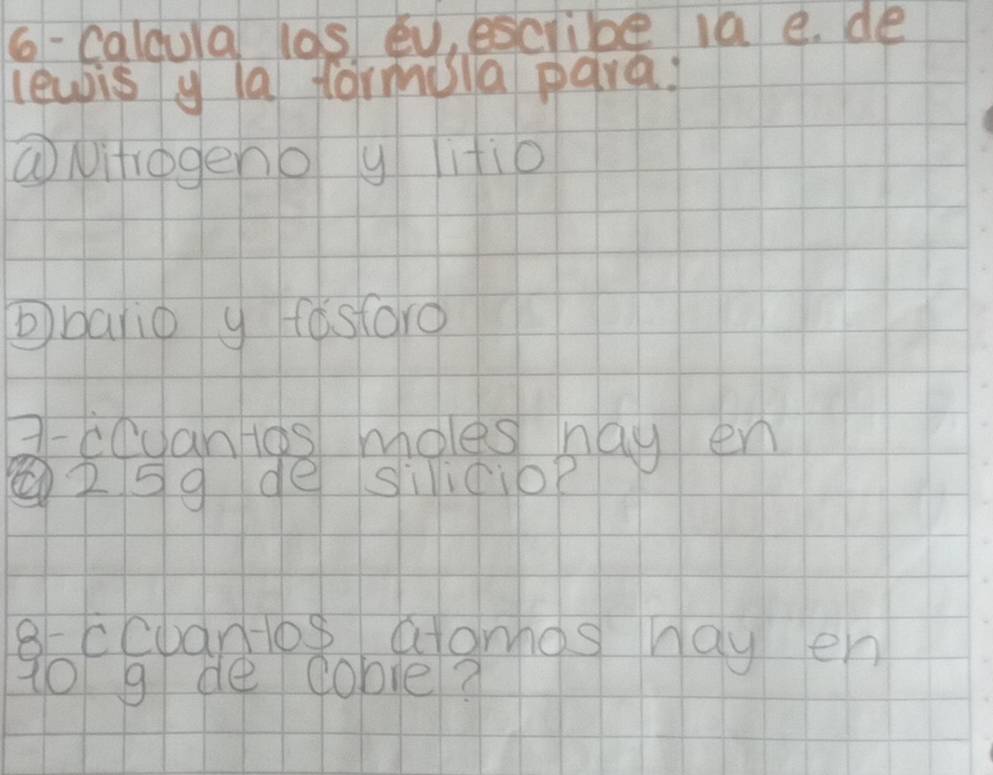 6-calcula las ev, escribe la e. de
lewis y la formula para:
ⓐ Nitrogeno y litio
ⓑ bario y fósforo
7-¿Cuantos moles hay en
ⓐ 2.5g de silicio?
8-¿Cuantos atomos hay en
90 g de cobre?